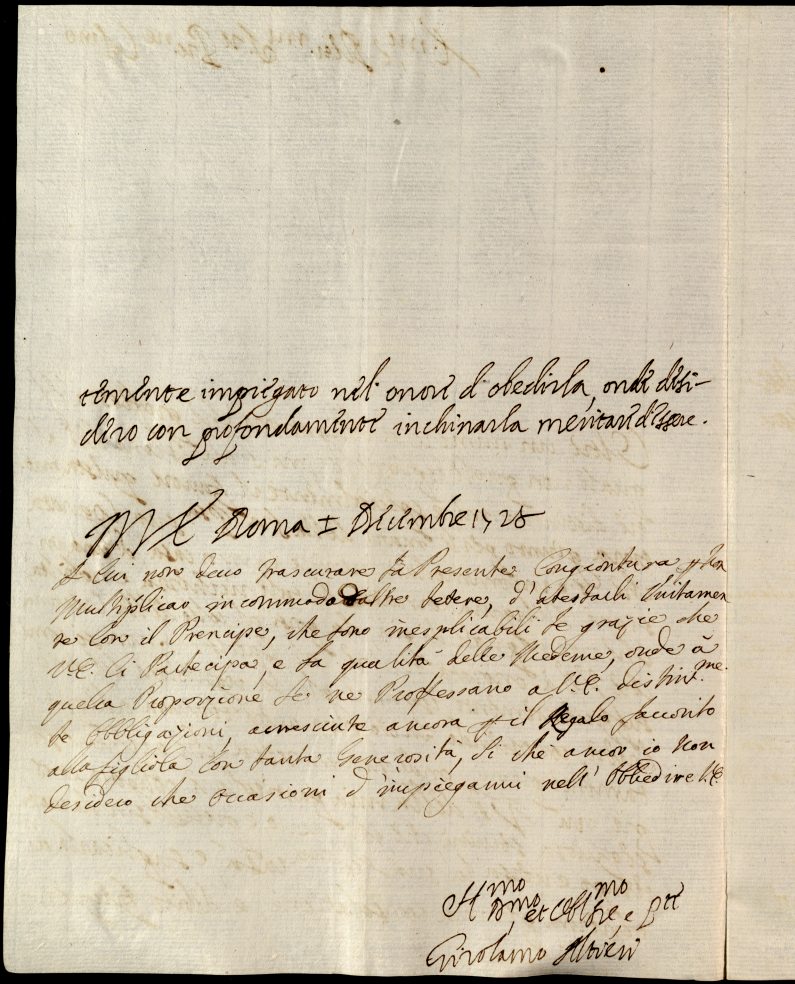 temente impiegato nel' onore d'obedirla, onde desi-
dero con profondamente inchinarla meritar d'essere.
V E Roma I Decembre 1728
Qui non devo trascurare la Presente Congiontura p non
Multiplicar incommodo altre lettere, d'atestarli Unitamen
te Con il Prencipe, che sono inesplicabili le grazie che
V.E. Ci Partecipa, e la qualità delle Medeme, onde à
quella Proporzione Se ne Professano a V.E. distint.me
le Obbligazioni, accresciute ancora p il Regalo
alla figliola Con tanta Generosità, Si che ancor io Non
desidero che occasioni d'impiegarmi nell' Obbedire V.E.
mo mo
D.mo, et Obl Sre, e
Girolamo Altieri